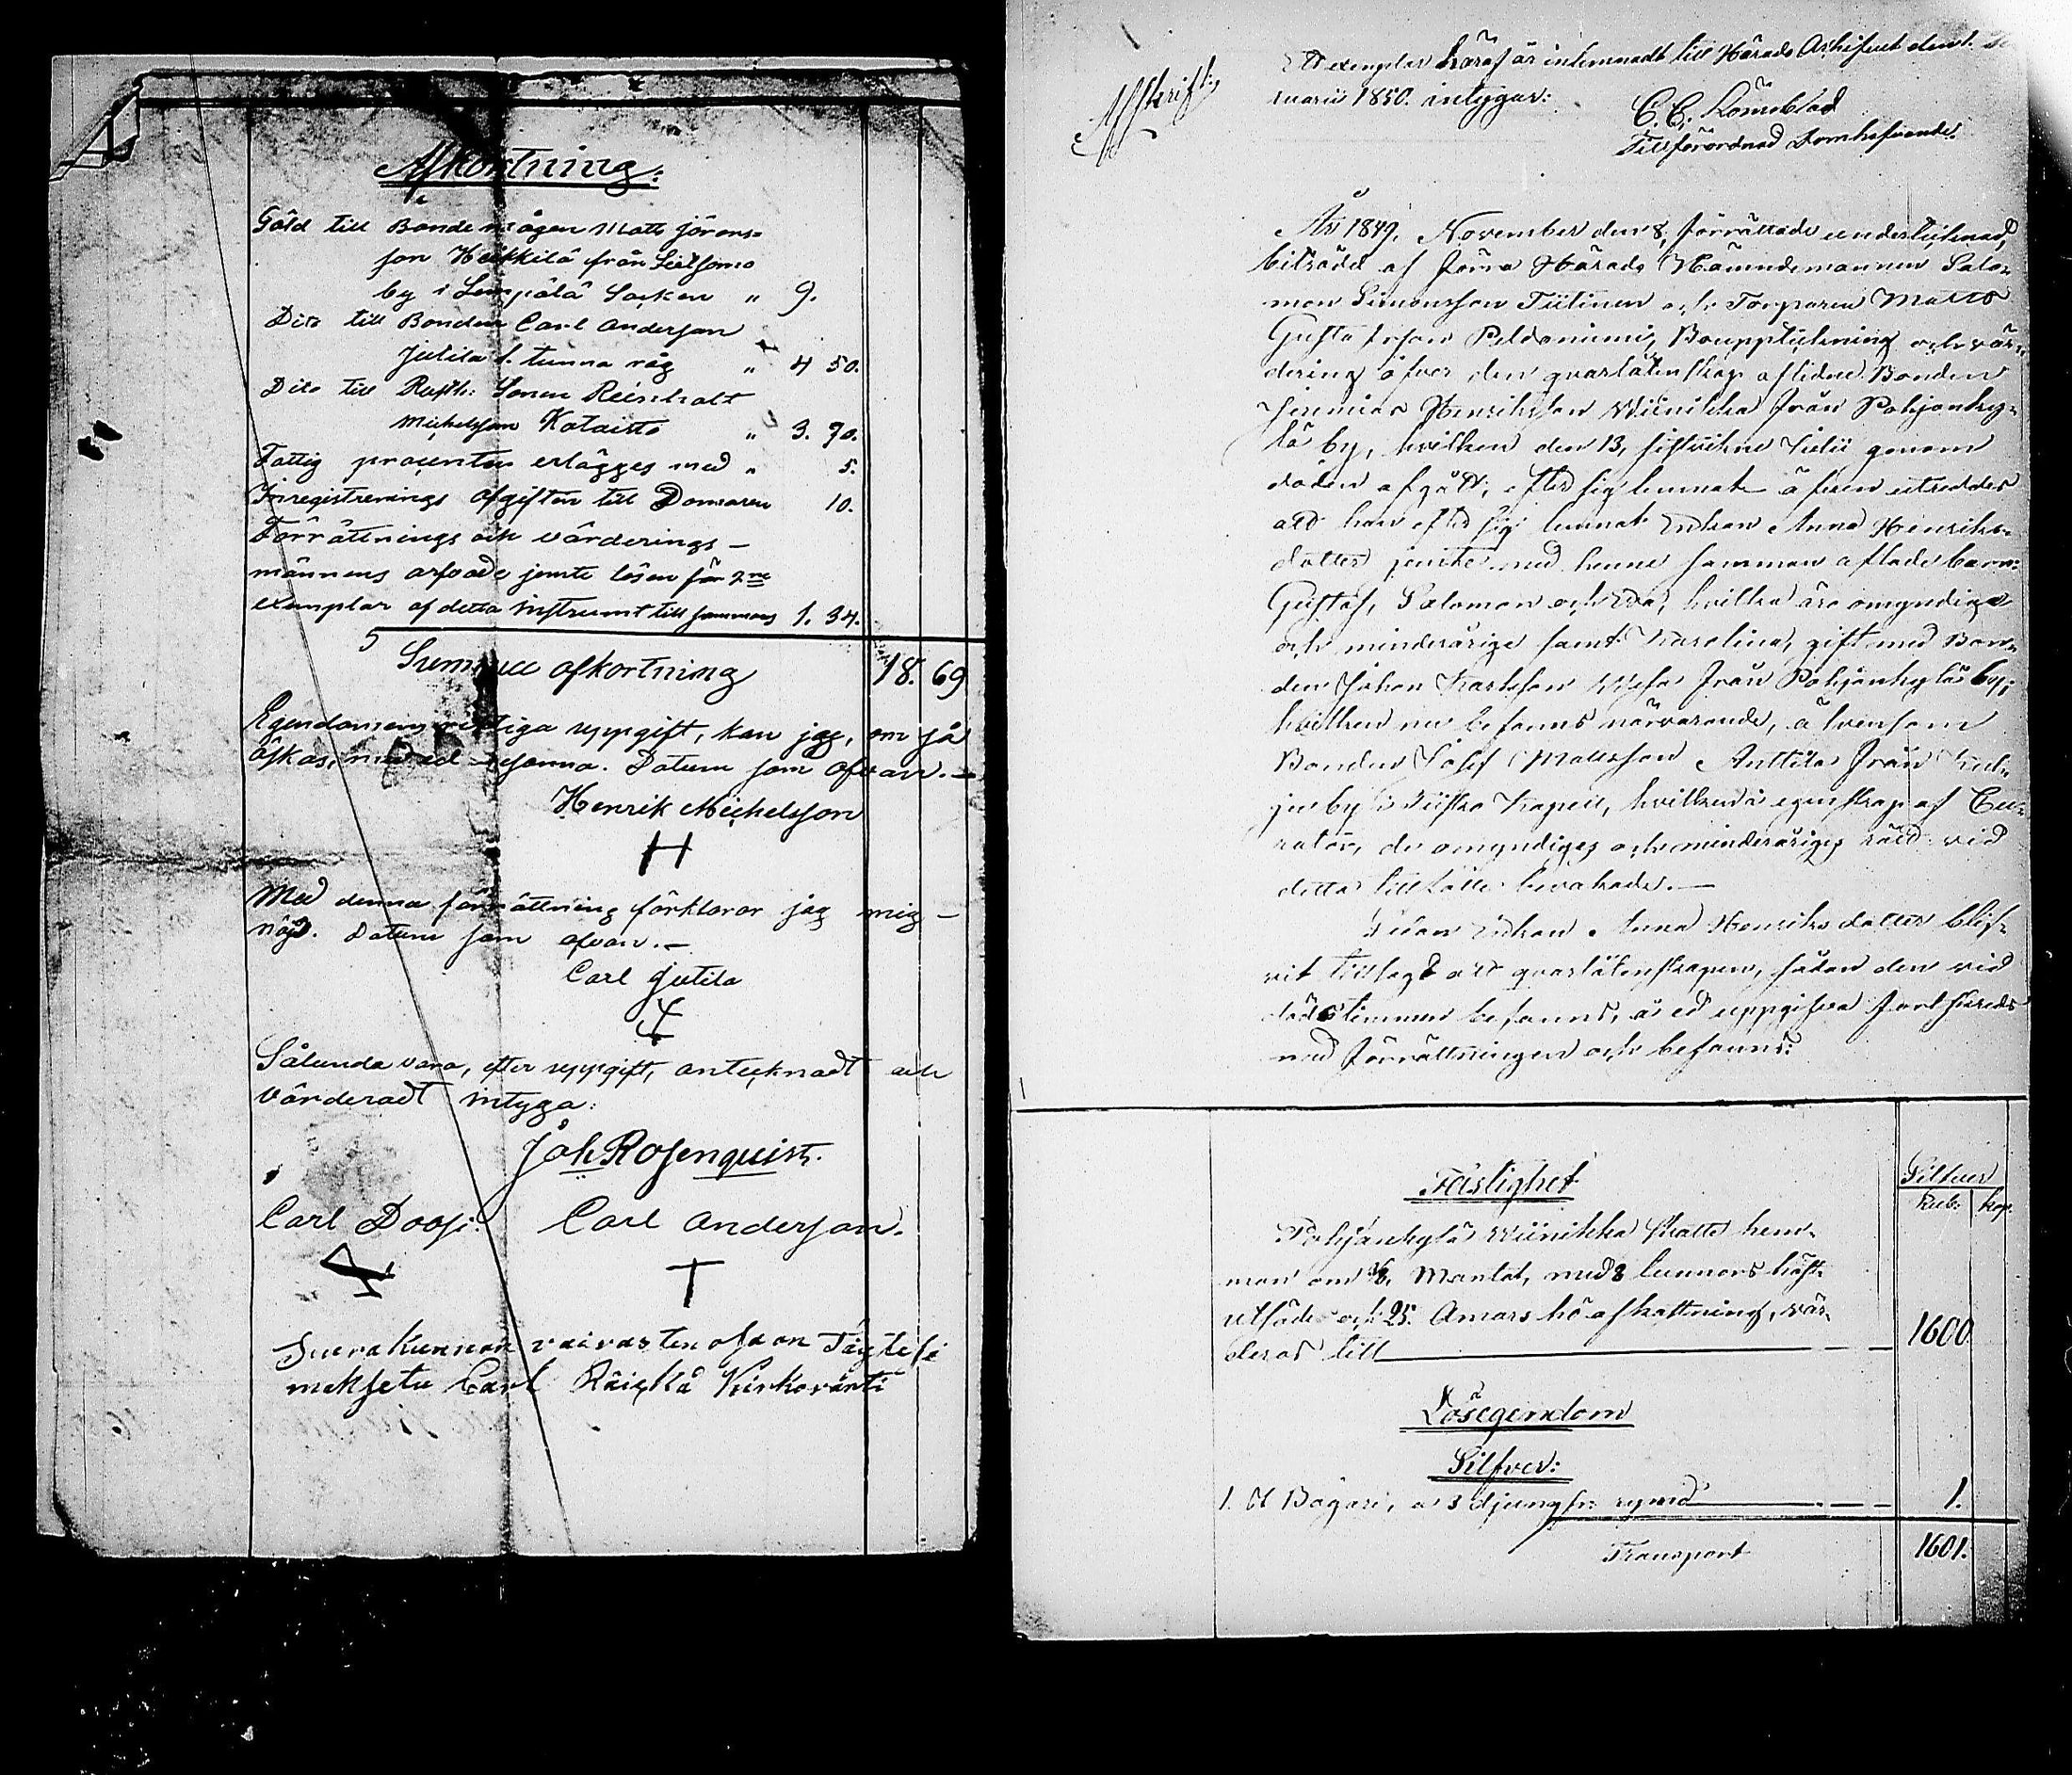 Afkortning:
Gäld till Bonde mågen Matts Jörans-
son Heikkilä från Sietsama
by i Lempälä Socken " 9.
Dito till Bonden Carl Anderson
Jutila 1. tunna råg " 4 50.
Dito till Rusth: Sonen Reinholt
Michelsson Kataisto " 3. 70.
Fattig procenten erlägges med " 5.
Inregistrerings afgiften till Domaren 10.
Förrättnings och värderings-
männens arfvode jemte lösen för 2ne
exemplar af detta instrumt till sammans 1. 34.
Summa afkortning 18. 69
Egendomens riktiga uppgift, kan jag, om så
äskas, med ed besanna. Datum som ofvan.-
Henrik Michelsson
Med denna förrättning förklarar jag mig-
nöjd. Datum som ofvan.-
Carl Jutila
Sålunda vara, efter uppgift, antecknadt och
värderadt intyga:
Joh Rosenquist.
Carl Doosi. Carl Anderson.
Suera kunnan vaivasten osa on Täytesi
maksetu Carl Räikkä Kirkovärti
Afskrift
Ett exemplar häraf är inlemnadt till Härads Arkifvet den 1.
ruarii 1850. intygar:
C. C. Lönnblad
Tillförordnad Domhafvande.
År 1849, November den 8, förrättade undertecknad,
biträdd af förra Härads Nämndemannen Salo-
mon Simonsson Tiilinen och Torparen Matts
Gustafsson Peldoniemi, Bouppteckning och vär-
dering öfver den qvarlåtenskap aflidne Bonden
Jeremias Henriksson Wiinikka från Pohjanky-
lä by, hvilken den 13, sistvikne Julii genom
döden afgått, efter sig lemnat äfven utreddes
att han efter sig lemnat Enkan Anna Henriks-
dotter jemte med henne samman aflade barn:
Gustaf, Salomon och Eva, hvilka äro omyndige
och minderårige samt Karolina, gift med Bon-
den Johan Karlsson från Pohjankylä by;
hvilken nu befanns närvarande, äfvensom
Bonden Josef Mattsson Anttila från
by i Kapell, hvilken i egenskap af Cu-
rator, de omyndiges och minderåriges rätt vid
detta tillfälle bevakade.-
Sedan Enkan Anna Henriksdotter blif-
vit tillsagd att qvarlåtenskapen, sådan den vid
dödstimmen befanns, å ed uppgifva fortskreds
med förrättningen och befanns:
Silfver
Rub: kop.
Fastighet
Pohjankylä Wiinikka skatte hem-
man om Mantal, med 8 tunnors höst-
utsäde och 25. Amars hö afkattning, vär-
deras till 1600
Lösegendom
Silfver:
1. st Bägare, a 3 djungfr: rymd 1.
Transport 1601.